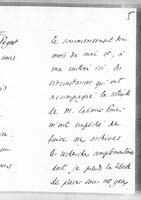 5
Le commencement du
mois de mai et, à
ma rentrée ici, les
circonstances qui ont
accompagné la retraite
de M. Casimir Périer
m'ont empêché de
faire aux archives
les recherches complémentaires
dont je prends la liberté
de placer sous vos yeux